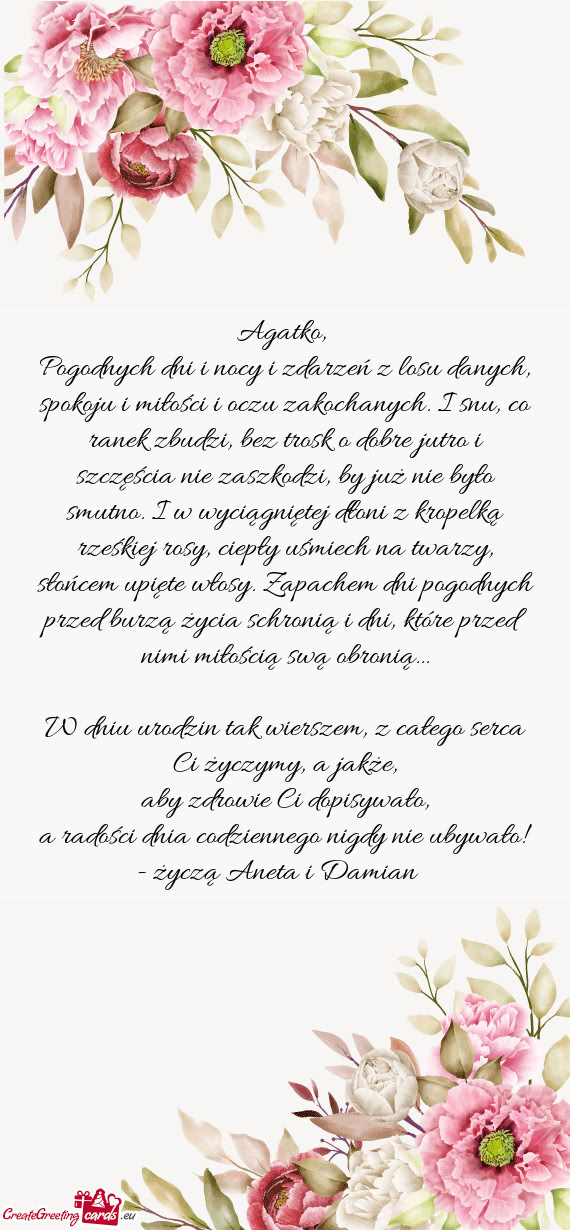 Agatko,
Pogodnych dni i nocy i zdarzeń z losu danych,
spokoju i miłości i oczu zakochanych. I snu, co
ranek zbudzi, bez trosk o dobre jutro i
szczęścia nie zaszkodzi, by już nie było
smutno. I w wyciągniętej dłoni z kropelką
rześkiej rosy, ciepły uśmiech na twarzy,
słońcem upięte włosy. Zapachem dni pogodnych
przed burzą życia schronią i dni, które przed
nimi miłością swą obronią...
W dniu urodzin tak wierszem, z całego serca
Ci życzymy, a jakże,
aby zdrowie Ci dopisywało,
a radości dnia codziennego nigdy nie ubywało!
- życzą Aneta i Damian
CreateGreeting cards .eu